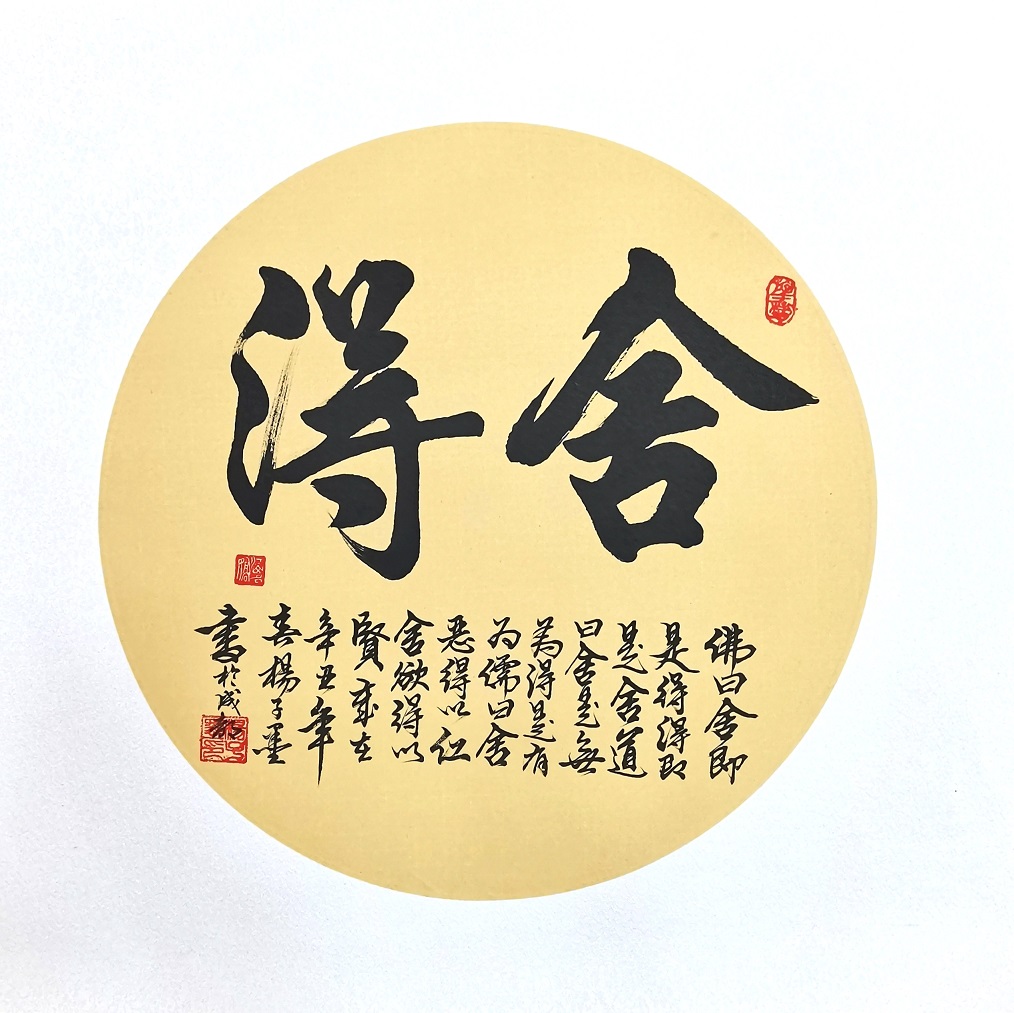 舍得
佛曰舍即
是得得即
是舍道
曰舍是無
為得是有
为儒曰舍
恶得以仁
舍欲得以
賢歲在
辛丑年
喜楊子墨
書於成都